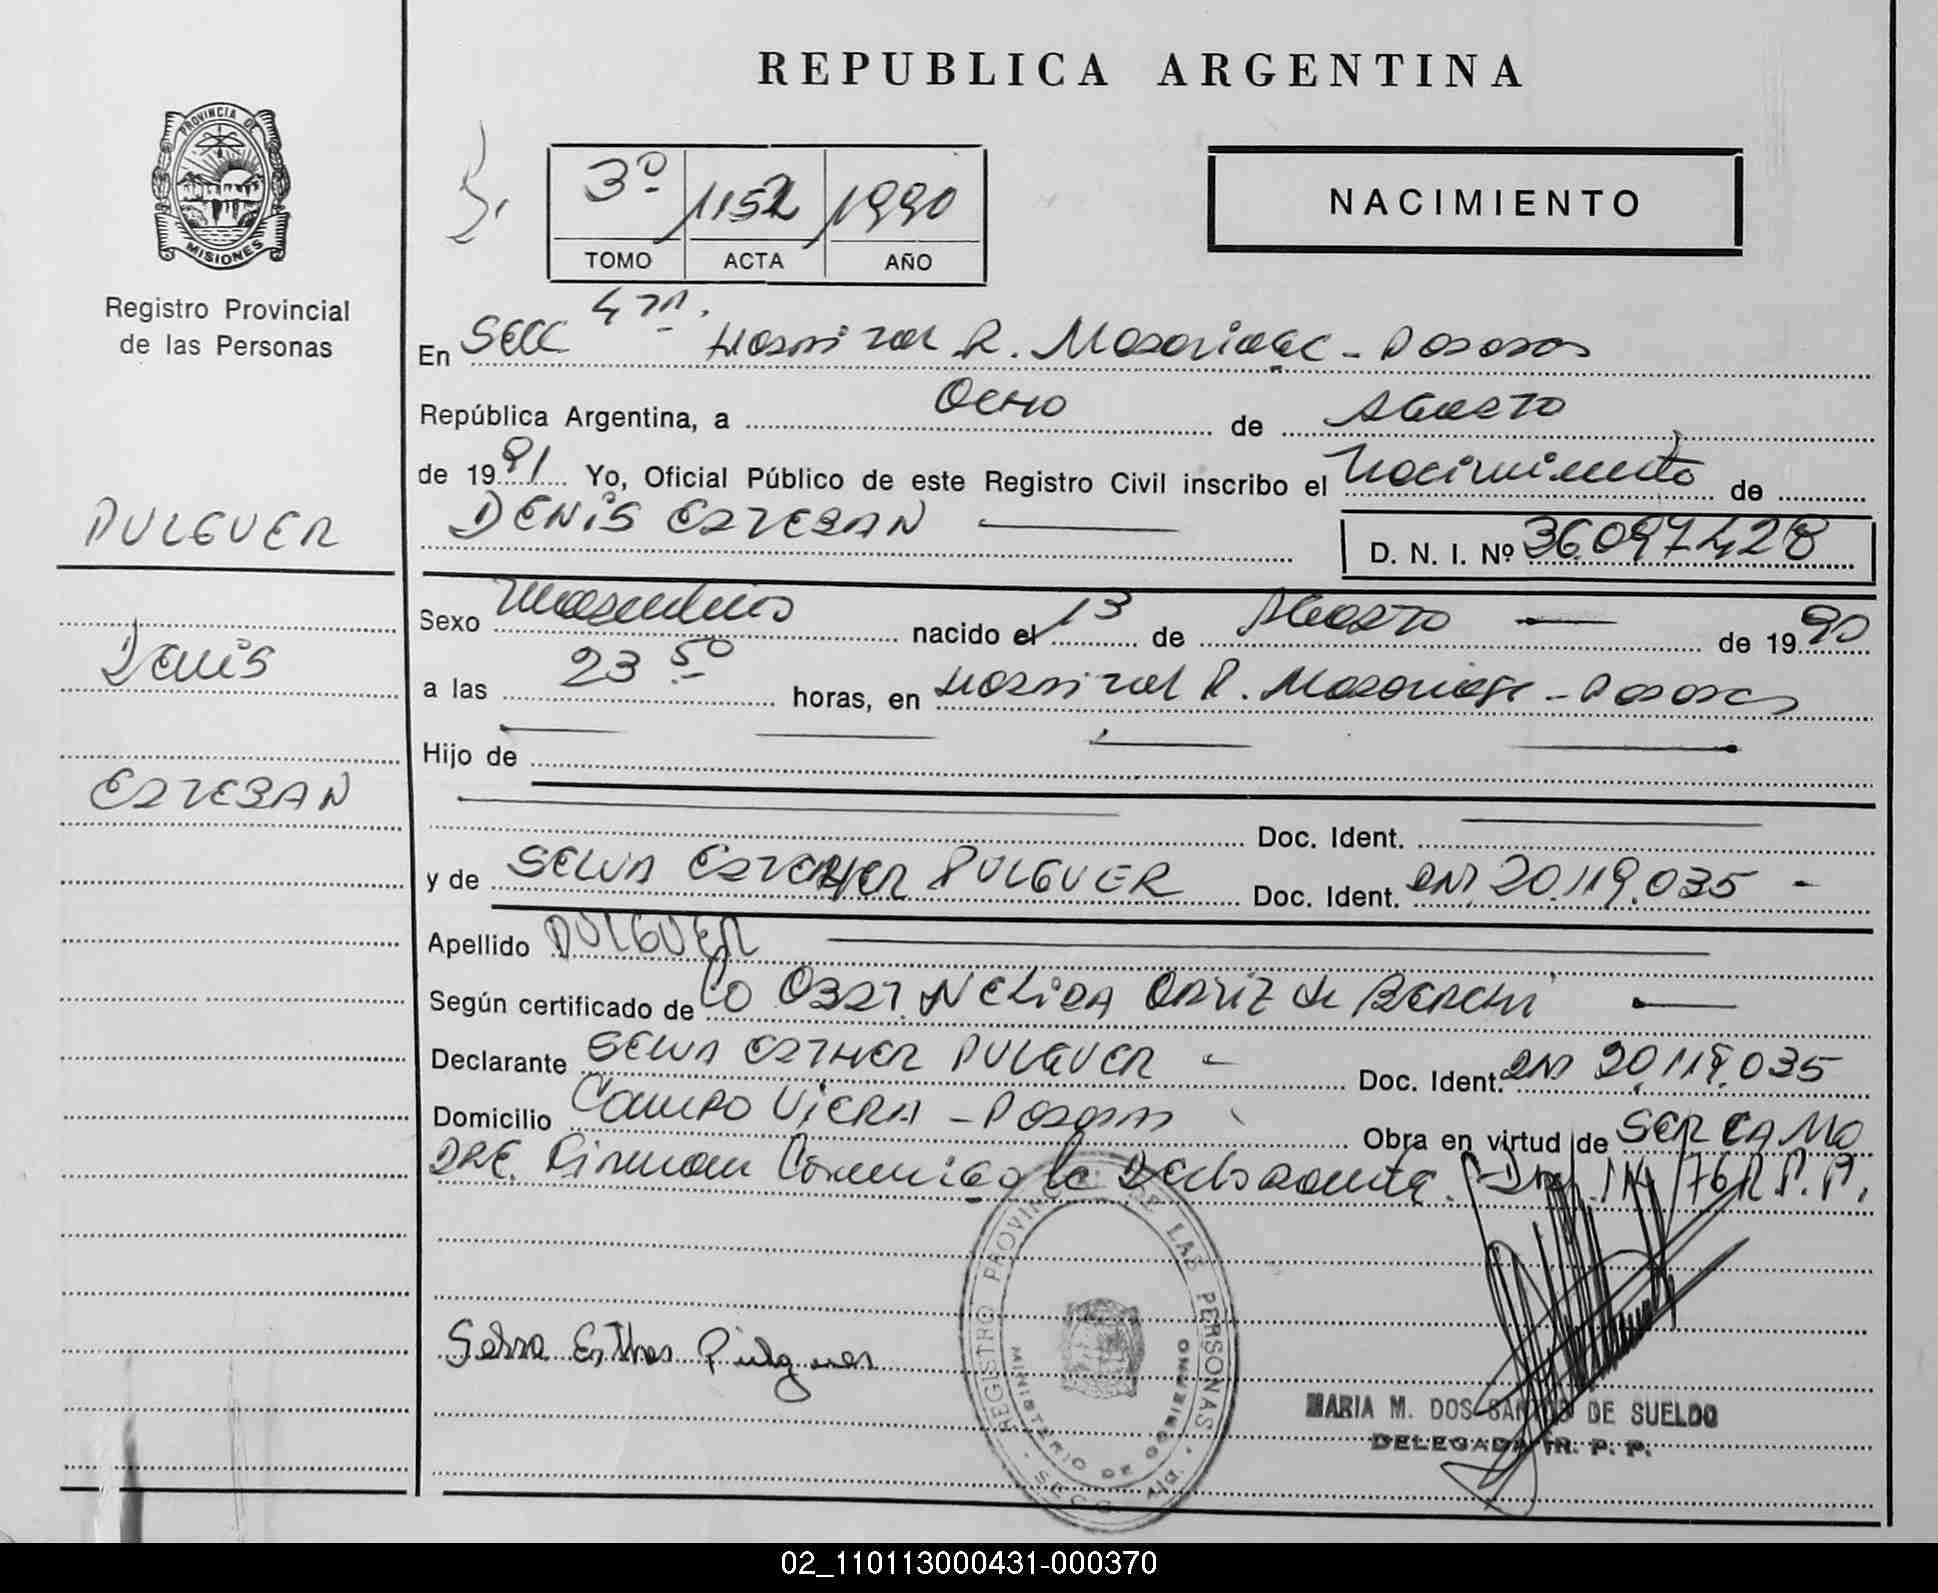 REPUBLICA ARGENTINA
PROVINCIA DE
MISIONES
Registro Provincial
de las Personas
3º 1152 1990
TOMO ACTA AÑO
NACIMIENTO
En SECC 4ta. Hospital R. Madariaga - Posadas
República Argentina, a Ocho de Agosto
de 1991 Yo, Oficial Público de este Registro Civil inscribo el Nacimiento de
PULGUER
DENIS ESTEBAN
D. N. I. Nº 36.097.428
Sexo Masculino nacido el 13 de Agosto de 1990
Denis
a las 23 50 horas, en Hospital R. Madariaga - Posadas
Hijo de
ESTEBAN
Doc. Ident.
y de SELVA ESTHER PULGUER Doc. Ident. DNI 20.119.035 -
Apellido PULGUER
Según certificado de la OBST. NELIDA ORTIZ de BERCHI
Declarante SELVA ESTHER PULGUER - Doc. Ident. DNI 20.119.035
Domicilio CAMPO VIERA - Posadas Obra en virtud de SER LA MA
DRE. Firman Conmigo la Declarante. 114/76 R.P.P.
REGISTRO PROVINCIAL DE LAS PERSONAS
MINISTERIO DE GOBIERNO
SECC. 4ta.
Selva Esther Pulguer
MARIA M. DOS SANTOS DE SUELDO
DELEGADA R. P. P.
02_110113000431-000370